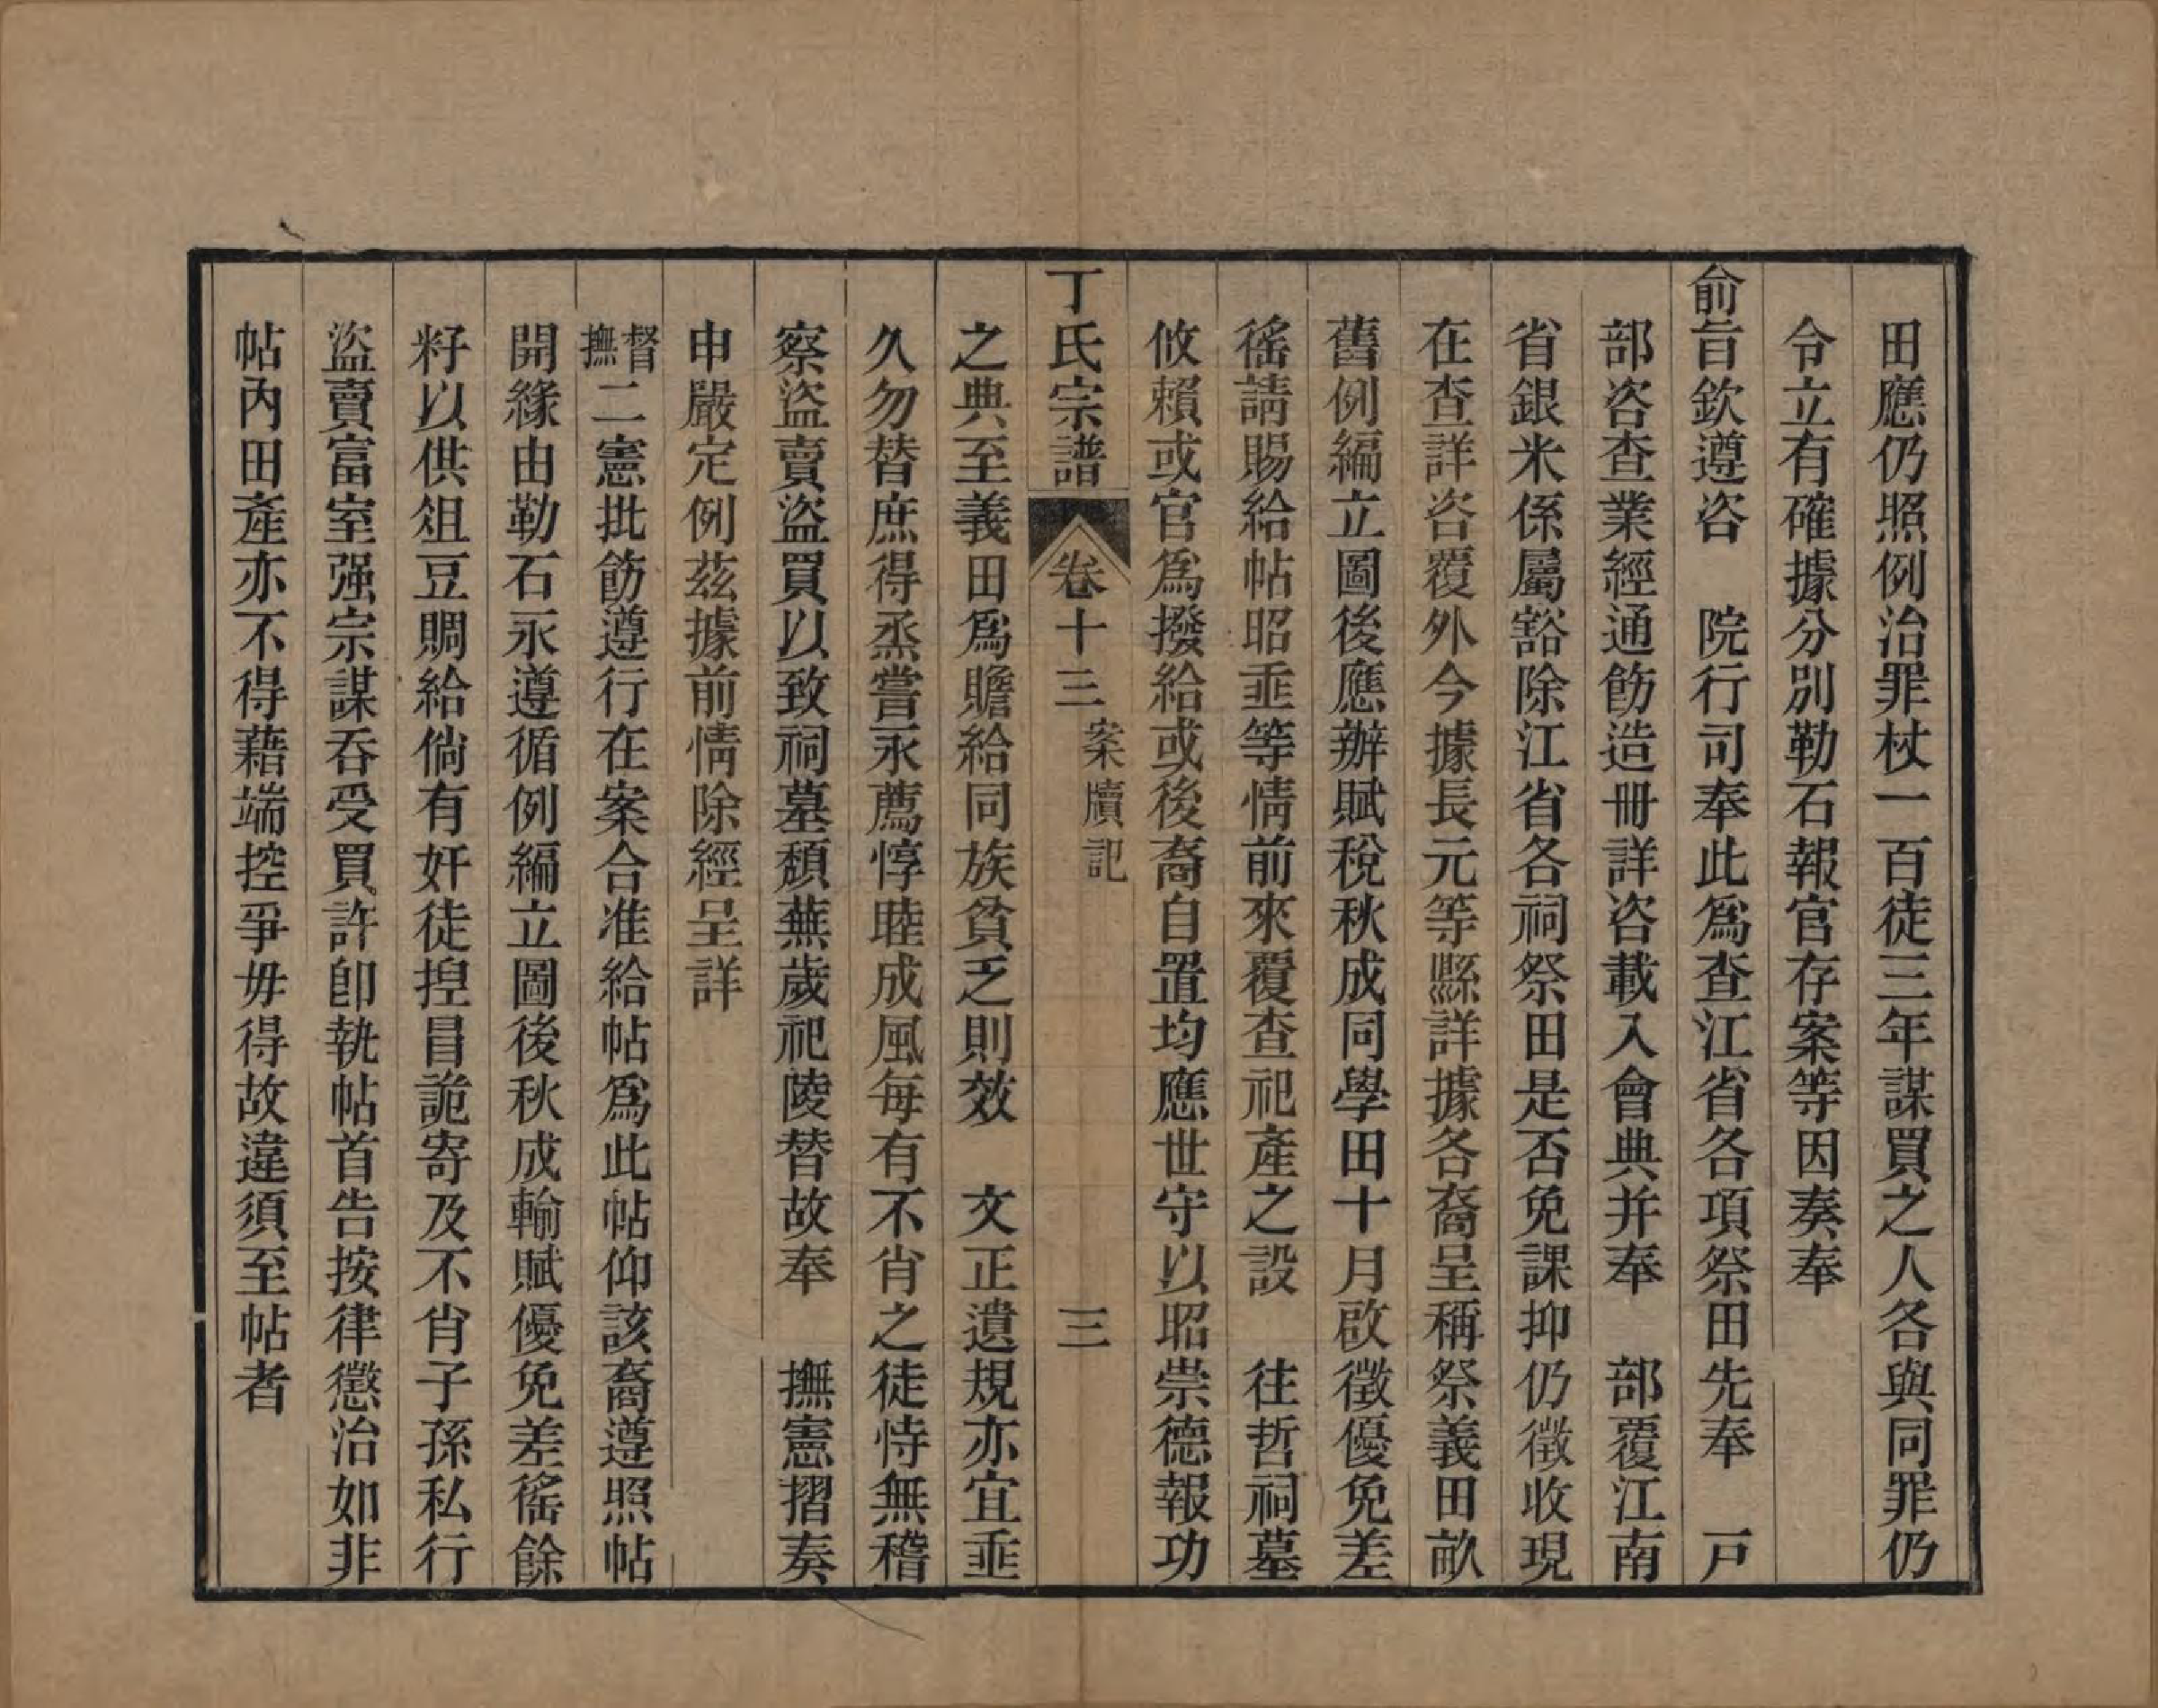 田應仍照例治罪杖一百徒三年謀買之人各與同罪仍
令立有確據分別勒石報官存案等因奏奉
俞旨欽遵咨　院行司奉此爲查江省各項祭田先奉　戸
部咨查業經通飭造冊詳咨載入會典并奉　部覆江南
省銀米係屬豁除江省各祠祭田是否免課抑仍徵收現
在查詳咨覆外今據長元等縣詳據各裔呈稱祭義田畝
舊例編立圖後應辦賦稅秋成同學田十月啟徵優免差
徭請賜給帖昭垂等情前來覆查祀產之設　往哲祠墓
攸賴或官爲撥給或後裔自置均應世守以昭崇德報功
丁氏宗譜　卷十三　案牘記　三
之典至義田爲贍給同族貧乏則效　文正遺規亦宜垂
久勿替庶得烝嘗永薦惇睦成風每有不肖之徒恃無稽
察盜賣盜買以致祠墓頹蕪歲祀陵替故奉　撫憲摺奏
申嚴定例茲據前情除經呈詳
督撫二憲批飭遵行在案合准給帖爲此帖仰該裔遵照帖
開緣由勒石永遵循例編立圖後秋成輸賦優免差徭餘
籽以供俎豆賙給倘有奸徒捏冒詭寄及不肖子孫私行
盜賣富室强宗謀吞受買許卽執帖首告按律懲治如非
帖內田產亦不得藉端控爭毋得故違須至帖者